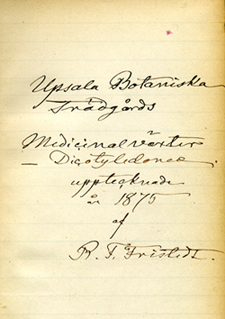 Upsala Botaniska
Trädgårds
Medicinalväxter
— Dicotyledonea.
upptecknade
år 1875
af
R. F. Fristedt.